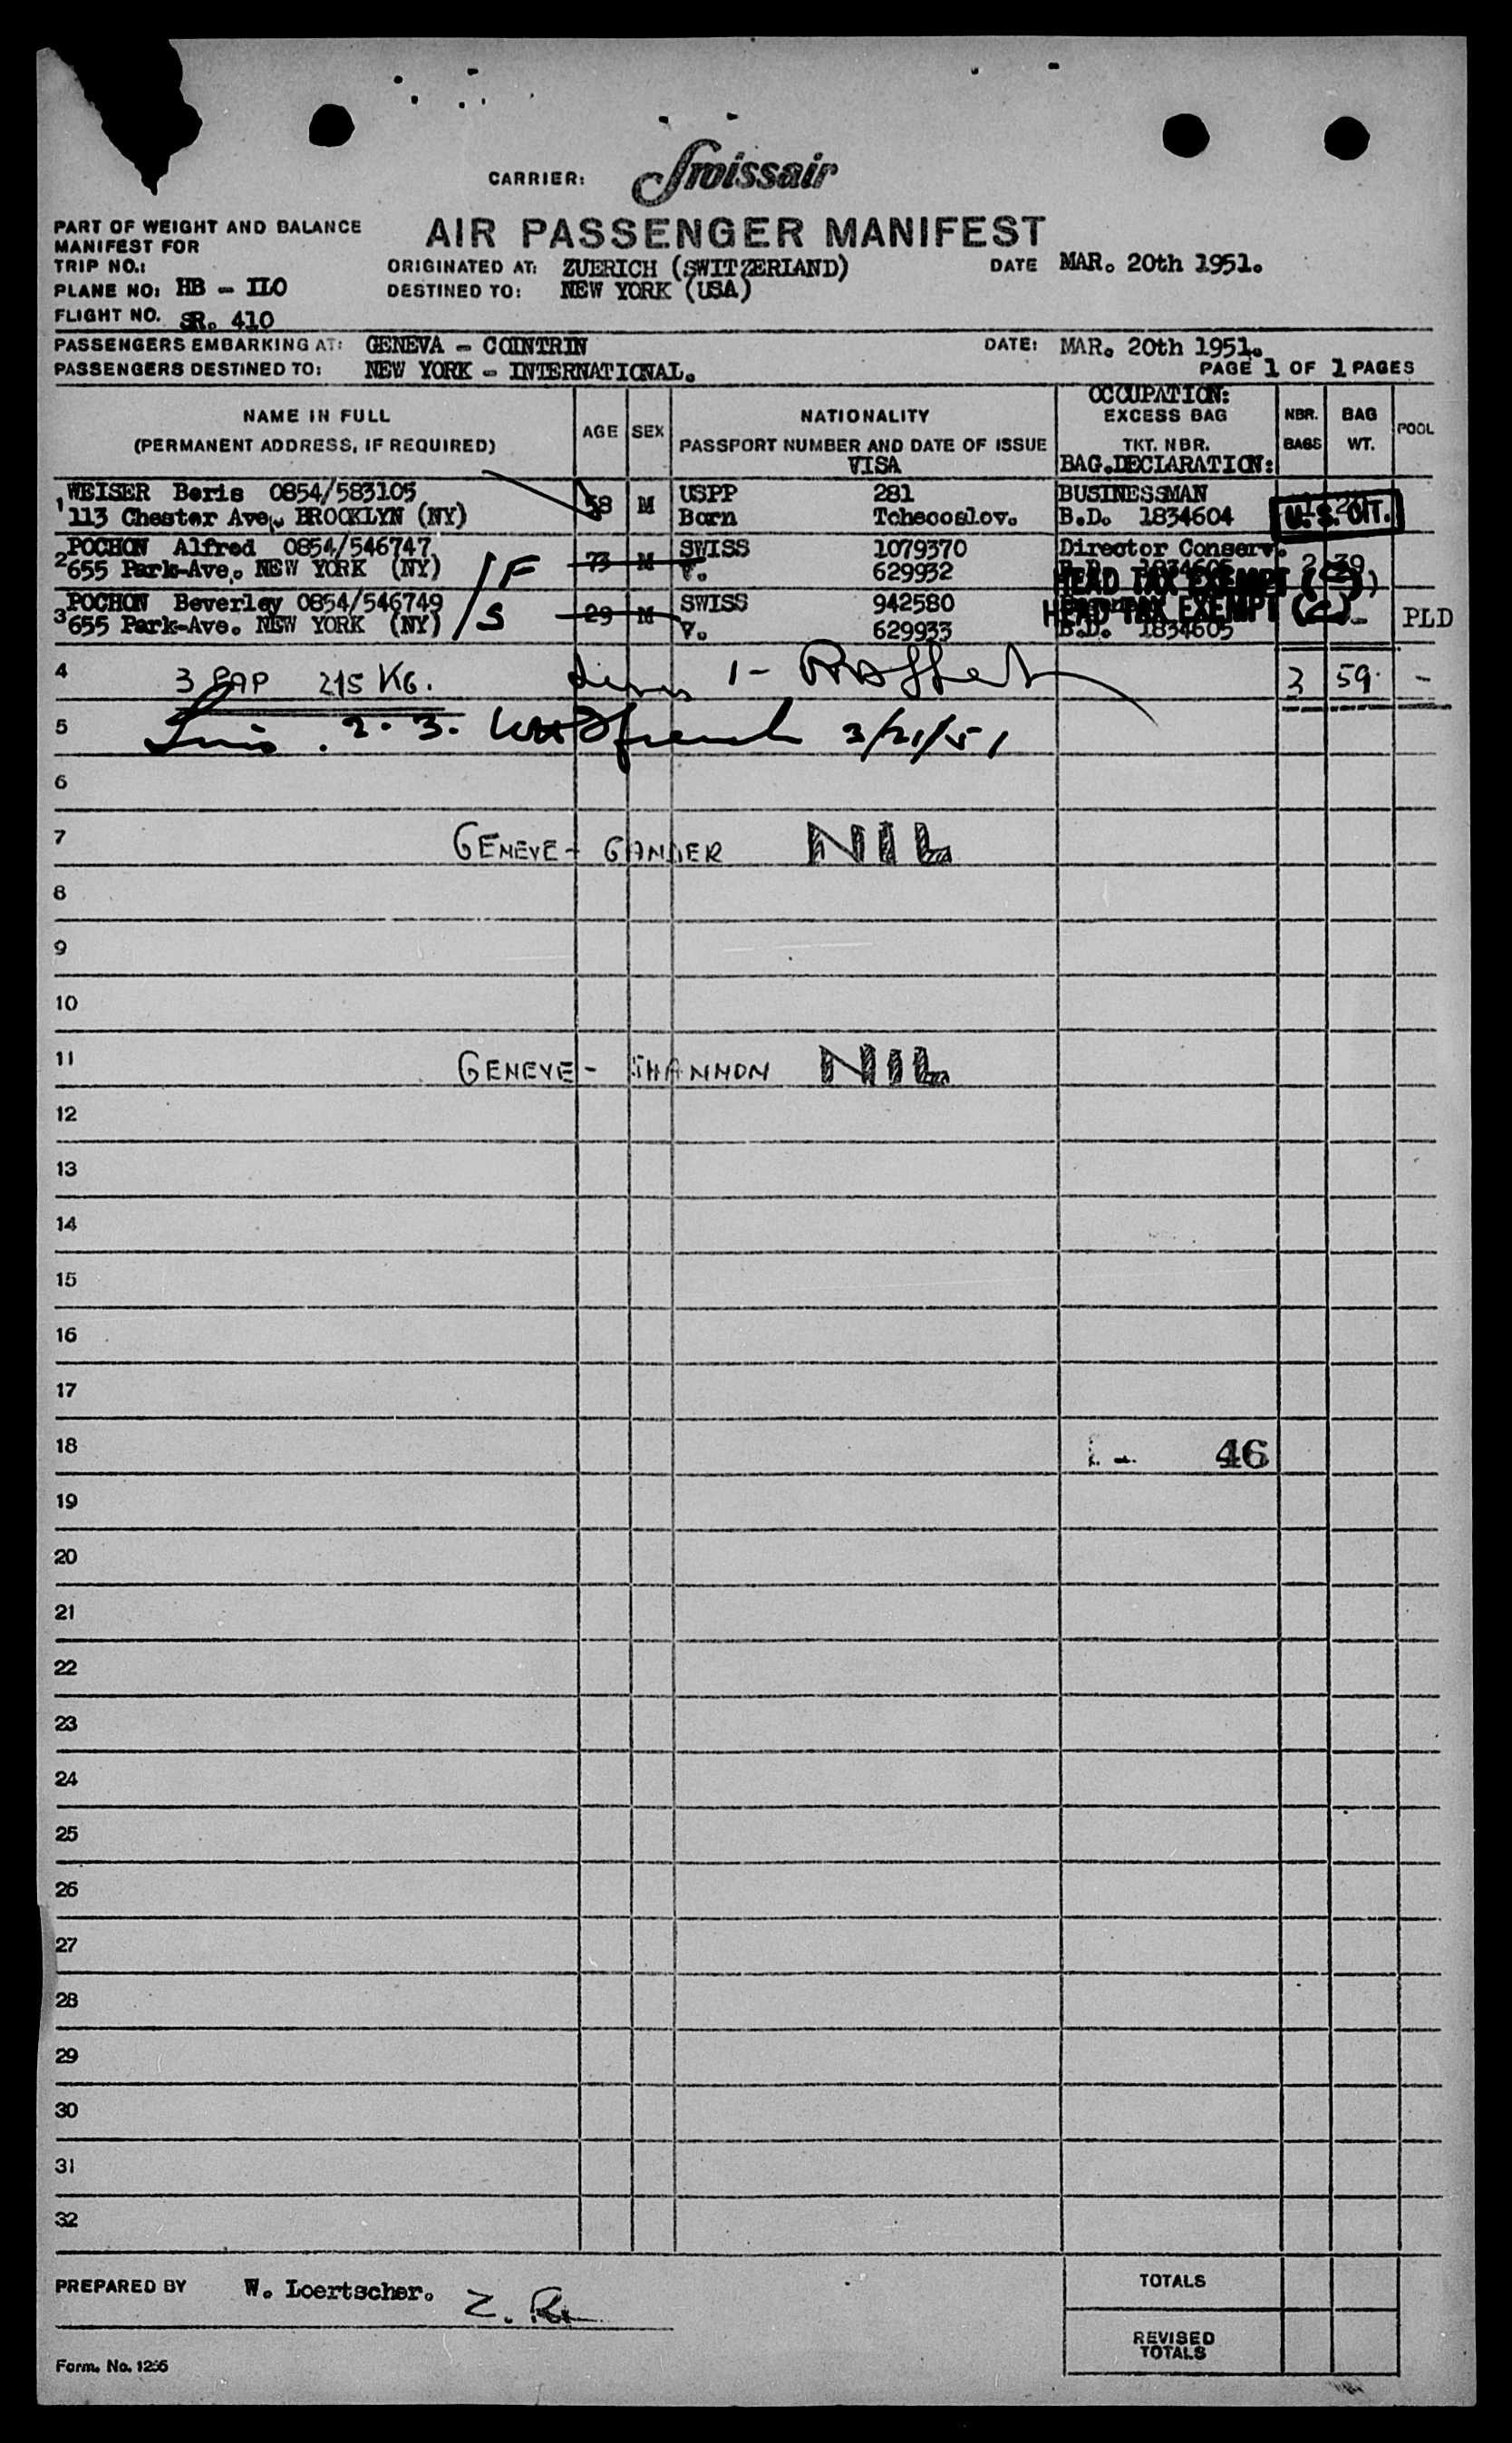 CARRIER: Swissair
PART OF WEIGHT AND BALANCE
MANIFEST FOR
AIR PASSENGER MANIFEST
TRIP NO.:
ORIGINATED AT: ZUERICH (SWITZERLAND) DATE MAR. 20th 1951.
PLANE NO: HB - ILO DESTINED TO: NEW YORK (USA)
FLIGHT NO. SR. 410
PASSENGERS EMBARKING AT: GENEVA - COINTRIN DATE: MAR. 20th 1951.
PASSENGERS DESTINED TO: NEW YORK - INTERNATIONAL. PAGE 1 OF 1 PAGES
NAME IN FULL
(PERMANENT ADDRESS, IF REQUIRED)
AGE SEX
NATIONALITY
PASSPORT NUMBER AND DATE OF ISSUE
VISA
OCCUPATION:
EXCESS BAG
TKT. NBR.
BAG.DECLARATION:
NBR.
BAGS
BAG
WT.
POOL
1 WEISER Boris 0854/583105 58 M USPP 281 BUSINESSMAN
113 Chester Ave,. BROOKLYN (NY) Born Tchecoslov. B.D. 1834604 U. S. CIT.
2 POCHON Alfred 0854/546747 73 M SWISS 1079370 Director Conserv.
655 Park-Ave. NEW YORK (NY) F V. 629932 B.D. 1834605 2 39
HEAD TAX EXEMPT
3 POCHON Beverley 0854/546749 29 M SWISS 942580
HEAD TAX EXEMPT
655 Park-Ave. NEW YORK (NY) S V. 629933 B.D. 1834605 - PLD
4 3 PAP 215 KG. 1- 3 59 -
5 2. 3. 3/21/51
6
7 GENEVE - GANDER NIL
8
9
10
11 GENEVE - SHANNON NIL
12
13
14
15
16
17
18 46
19
20
21
22
23
24
25
26
27
28
29
30
31
32
PREPARED BY W. Loertscher.
TOTALS
REVISED
TOTALS
Form. No. 1256